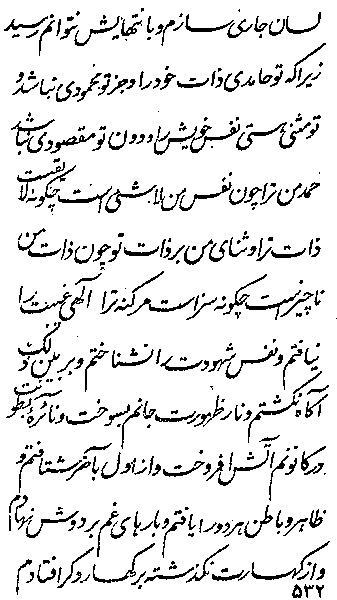 لسان جاری سازم و با نتهایش نتوانم رسید
زیرا که تو حامدی ذات خود را و جز تو محمودی نباشد و
تو مثنی هستی نفس خویش را و دون تو مقصودی نباشد
حمد من ترا چون نفس من لاشیئی است چگونه لایقست
ذات ترا و ثنای من بر ذات تو چون ذات من
ناچیز است چگونه سزاست مر کنه ترا الهی غیبت را
نیافتم و نفس شهودت را نشناختم و بر بین ذلک
آگاه نگشتم و نار ظهورت جانم بسوخت و نائره بطونت
در کانونم آتش افروخت و از اول باخر شتافتم و
ظاهر و باطن هر دو را یافتم و بارهای غم بر دوش نهادم
و از کهسارت نگذشته بر کهسار دگر افتادم
۵۳۲